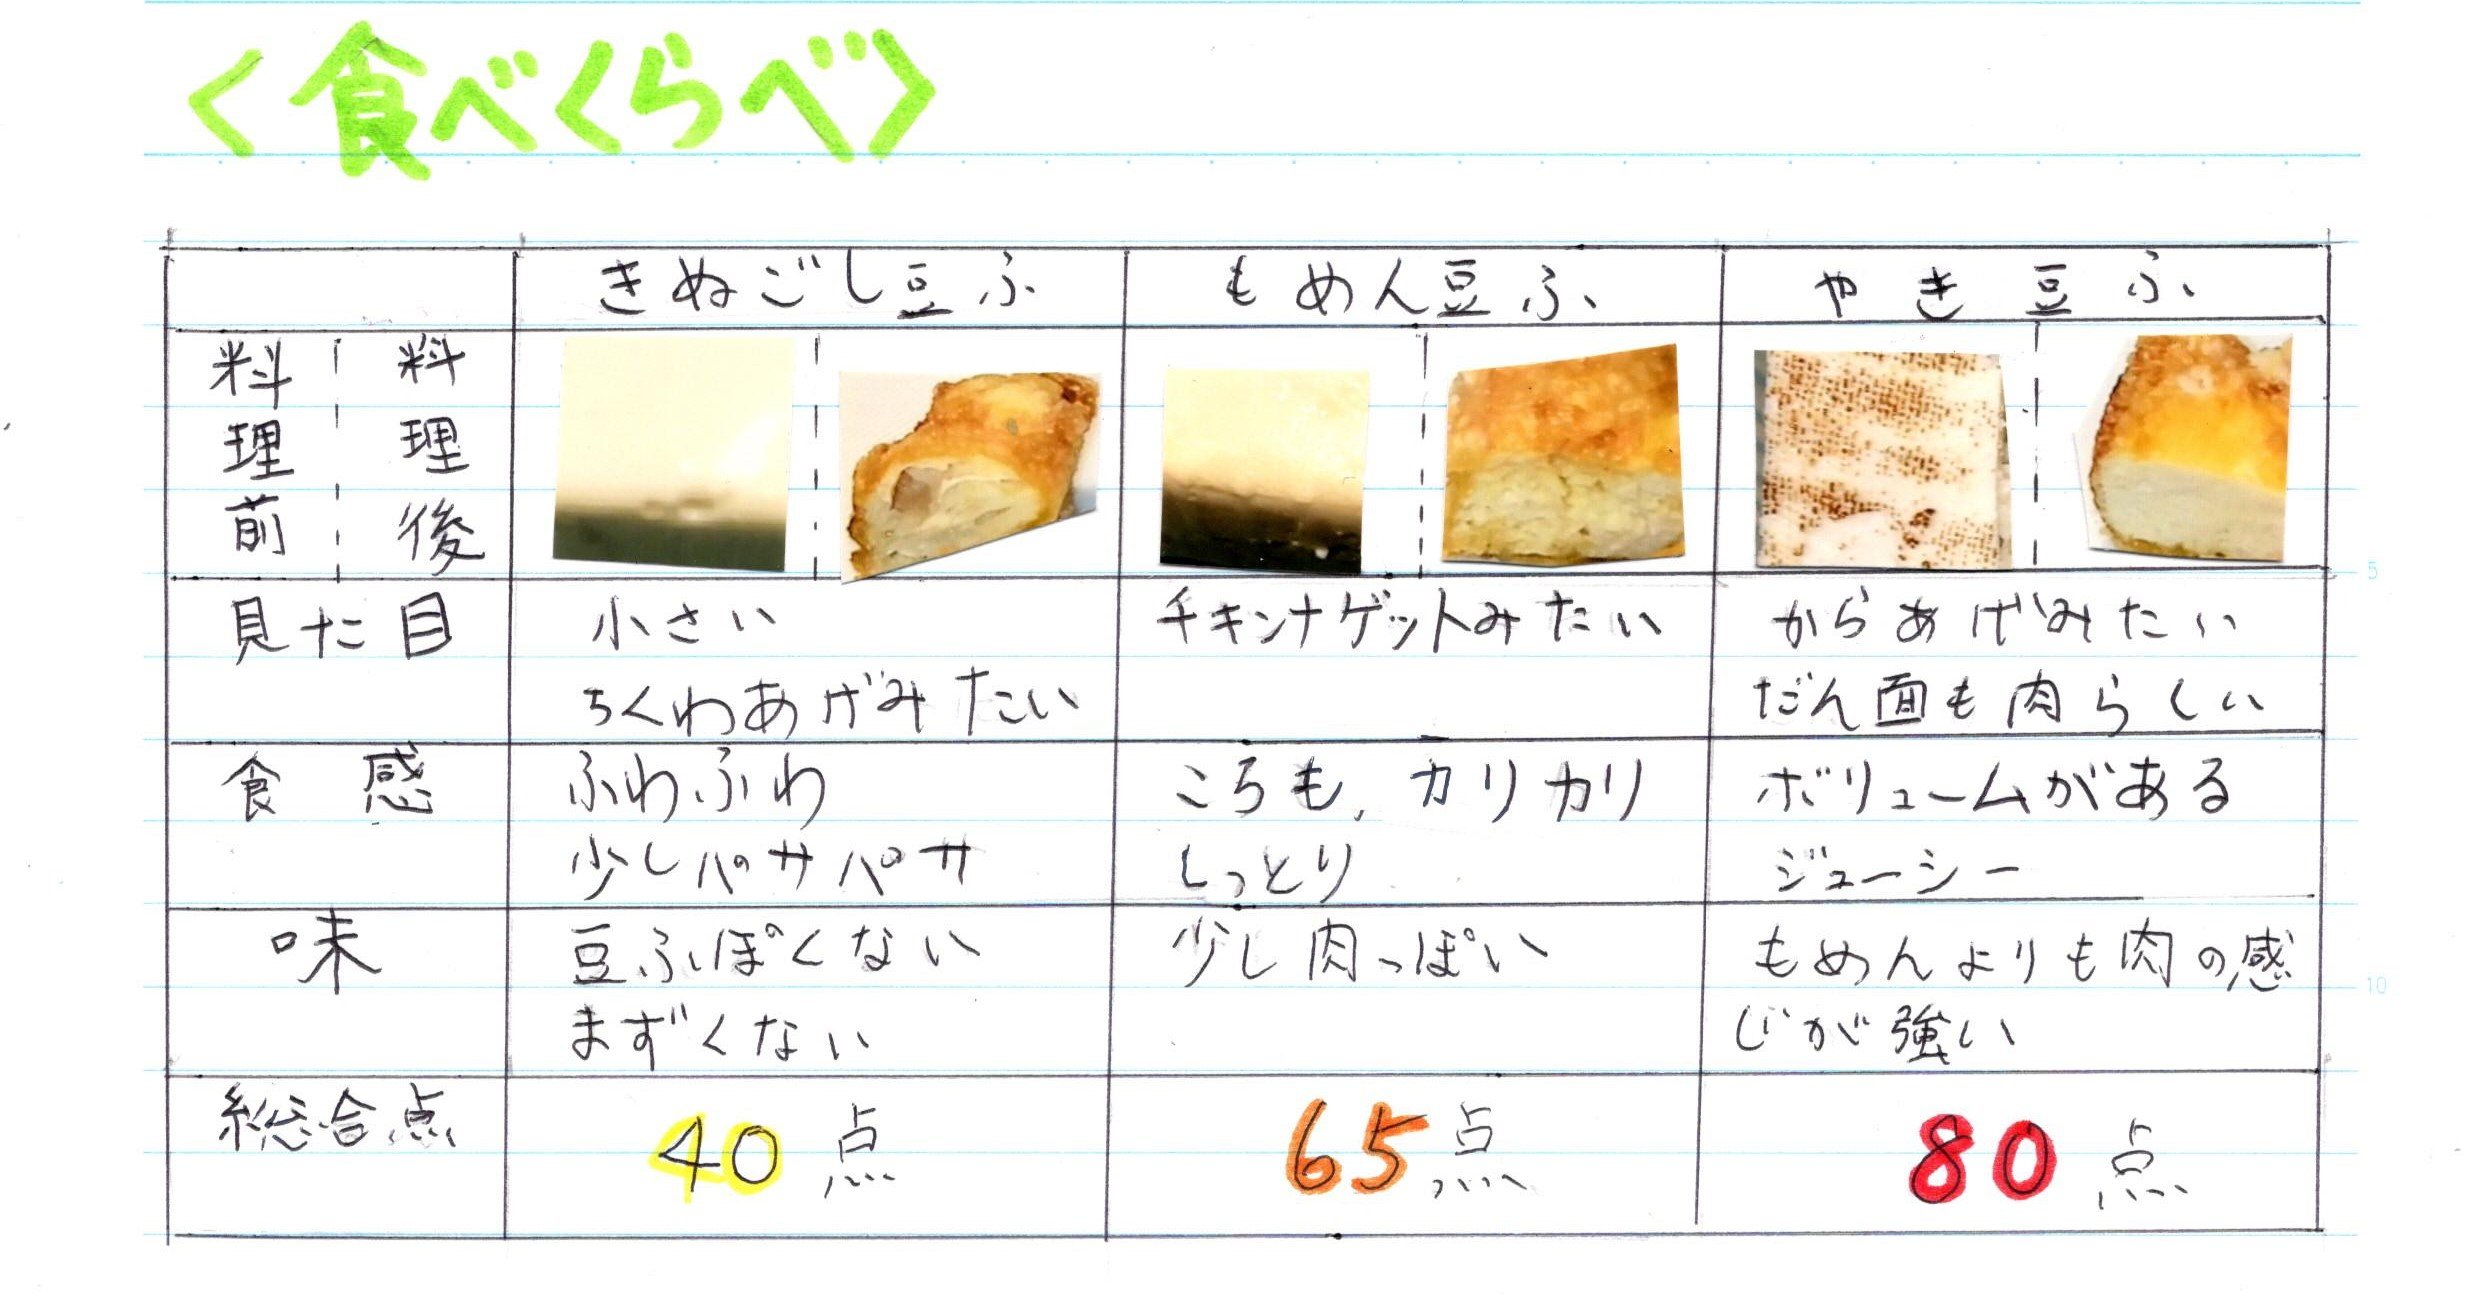 <食べくらべ>
きぬごし豆ふ もめん豆ふ やき豆ふ
料理前 料理後
見た目 小さい チキンナゲットみたい からあげみたい
ちくわあげみたい だん面も肉らしい
食感 ふわふわ ころも、カリカリ ボリュームがある
少しパサパサ しっとり ジューシー
味 豆ふぽくない 少し肉っぽい もめんよりも肉の感
まずくない じが強い
総合点 40点 65点 80点
5
10